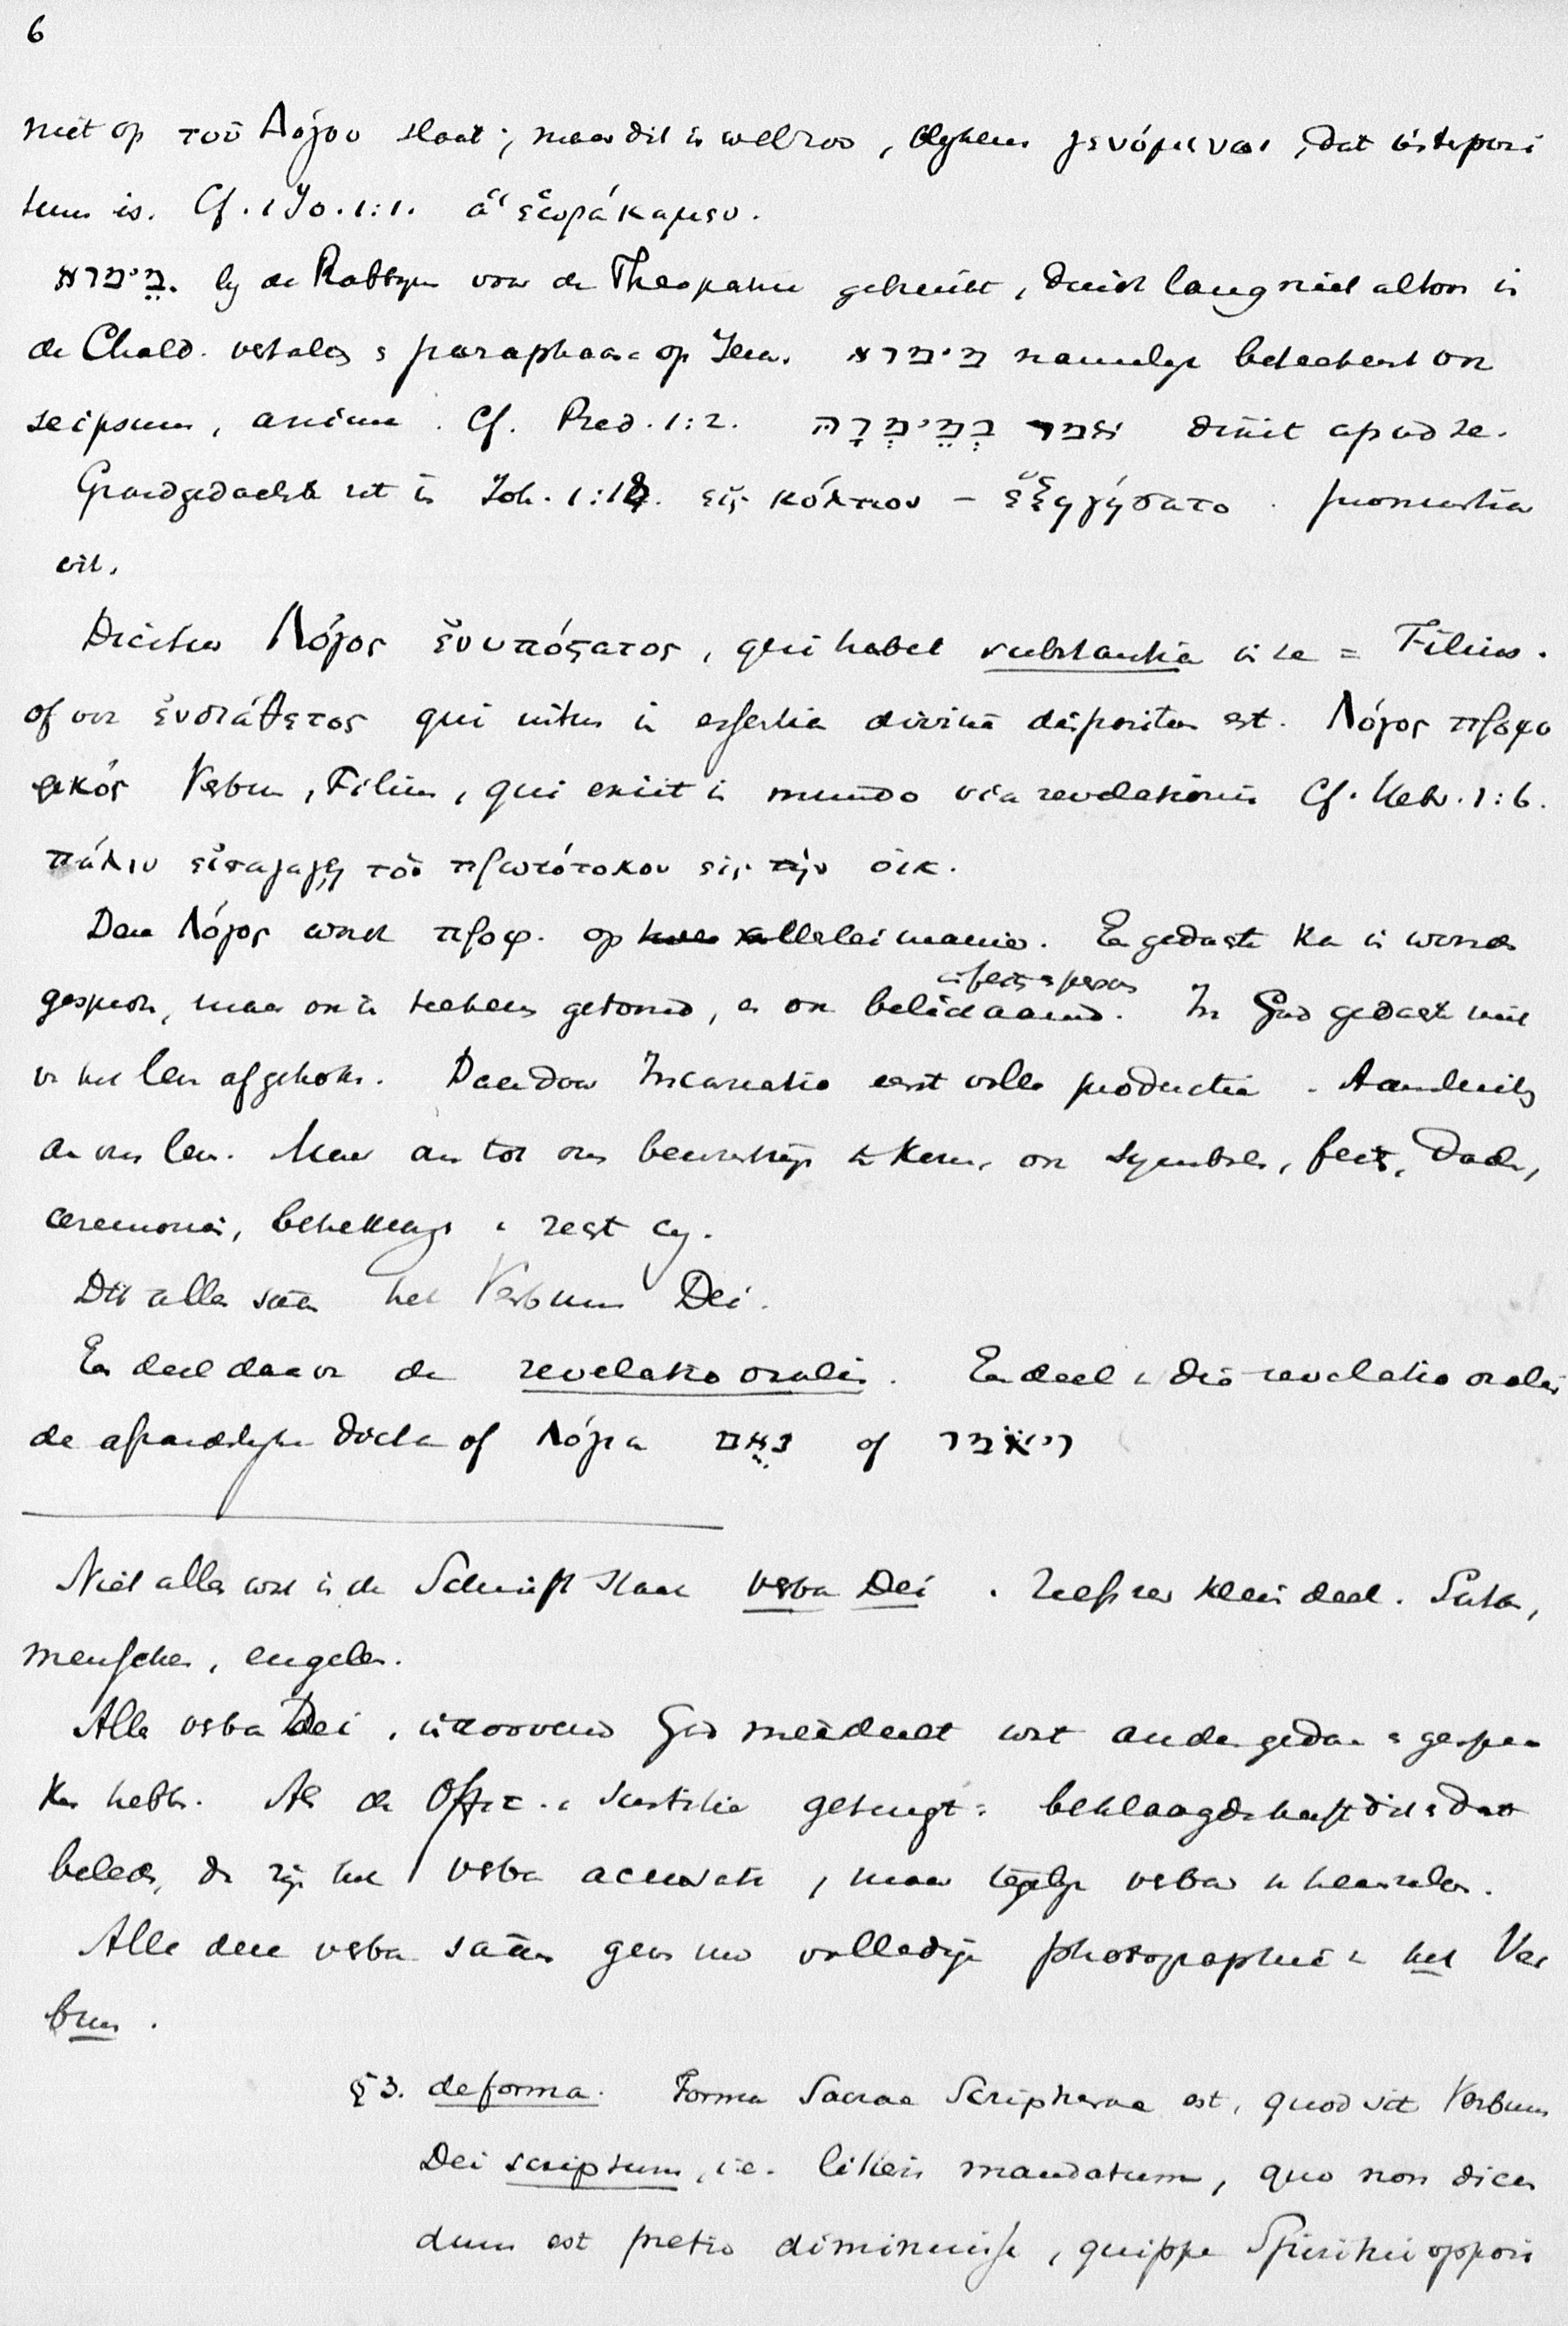 6
niet op τοῦ Λόγου slaat; maar dit is wel zoo, blykens γενόμενοι, dat
is. Cf. 1 Jo. 1:1. ὃ ἑωράκαμεν.
מֵימרא. by de Rabbyn voor de Theophanie gebruikt, duidt lang niet altoos in
de Chald. vertaling & paraphrase op Jezus. מימרא namelyk beteekent ook
seipsum, anima. Cf. Pred. 1:2. אמר בְּמֵימְרָהּ dixit apud se.
Grondgedachte zit in Joh. 1:18. εἰς κόλπον – ἐξηγήσατο. pronuntia
vit.
Dicitur Λόγος ἐνυπόστατος, qui habet substantia in se = Filius.
of ook ἐνδιάθετος qui intus in essentia divina dispositus est. Λόγος προφο
ρικός Verbum, Filius, qui exiit in mundo via revelationis Cf. Hebr. 1:6.
πάλιν εἰσαγάγῃ τὸν πρωτότοκον εἰς τὴν οἰκ.
Deze Λόγος wordt προφ. op allerlei manier. En gedachte kan in woorden
gesproken, maar ook in teekens getoond, en ook belichaamd. In God gedachte niet
van het leven afgetrokken. Daardoor Incarnatio eerst volle productie.
ons leven. Maar om tot ons bewustzijn te komen, ook symbolen, feiten, daden,
ceremonien, zegt Hy.
Dit alles saam het Verbum Dei.
Een deel daarvan de revelatio oralis. Een deel van die revelatio oralis
de afzonderlyke dicta of Λόγια נְאֻם of ויאמר
Niet alles wat in de Schrift staat verba Dei. Zelfs zeer klein deel. Satan,
menschen, engelen.
Alle verba Dei, in zooverre God meedeelt wat anderen gedaan & gespro
ken hebben. Als de Offic. v. Justitie getuigt: beklaagde heeft dit & dat
beleden, dan zijn het verba accusati, maar tegelyk verba
Alle deze verba saam geven nu volledige photographie van het Ver
bum.
§3. de forma. Forma Sacrae Scripturae est, quod sit Verbum
Dei scriptum, i.e. literis mandatum, quo non dicen
dum est pretio diminuisse, quippe Spiritui opposi